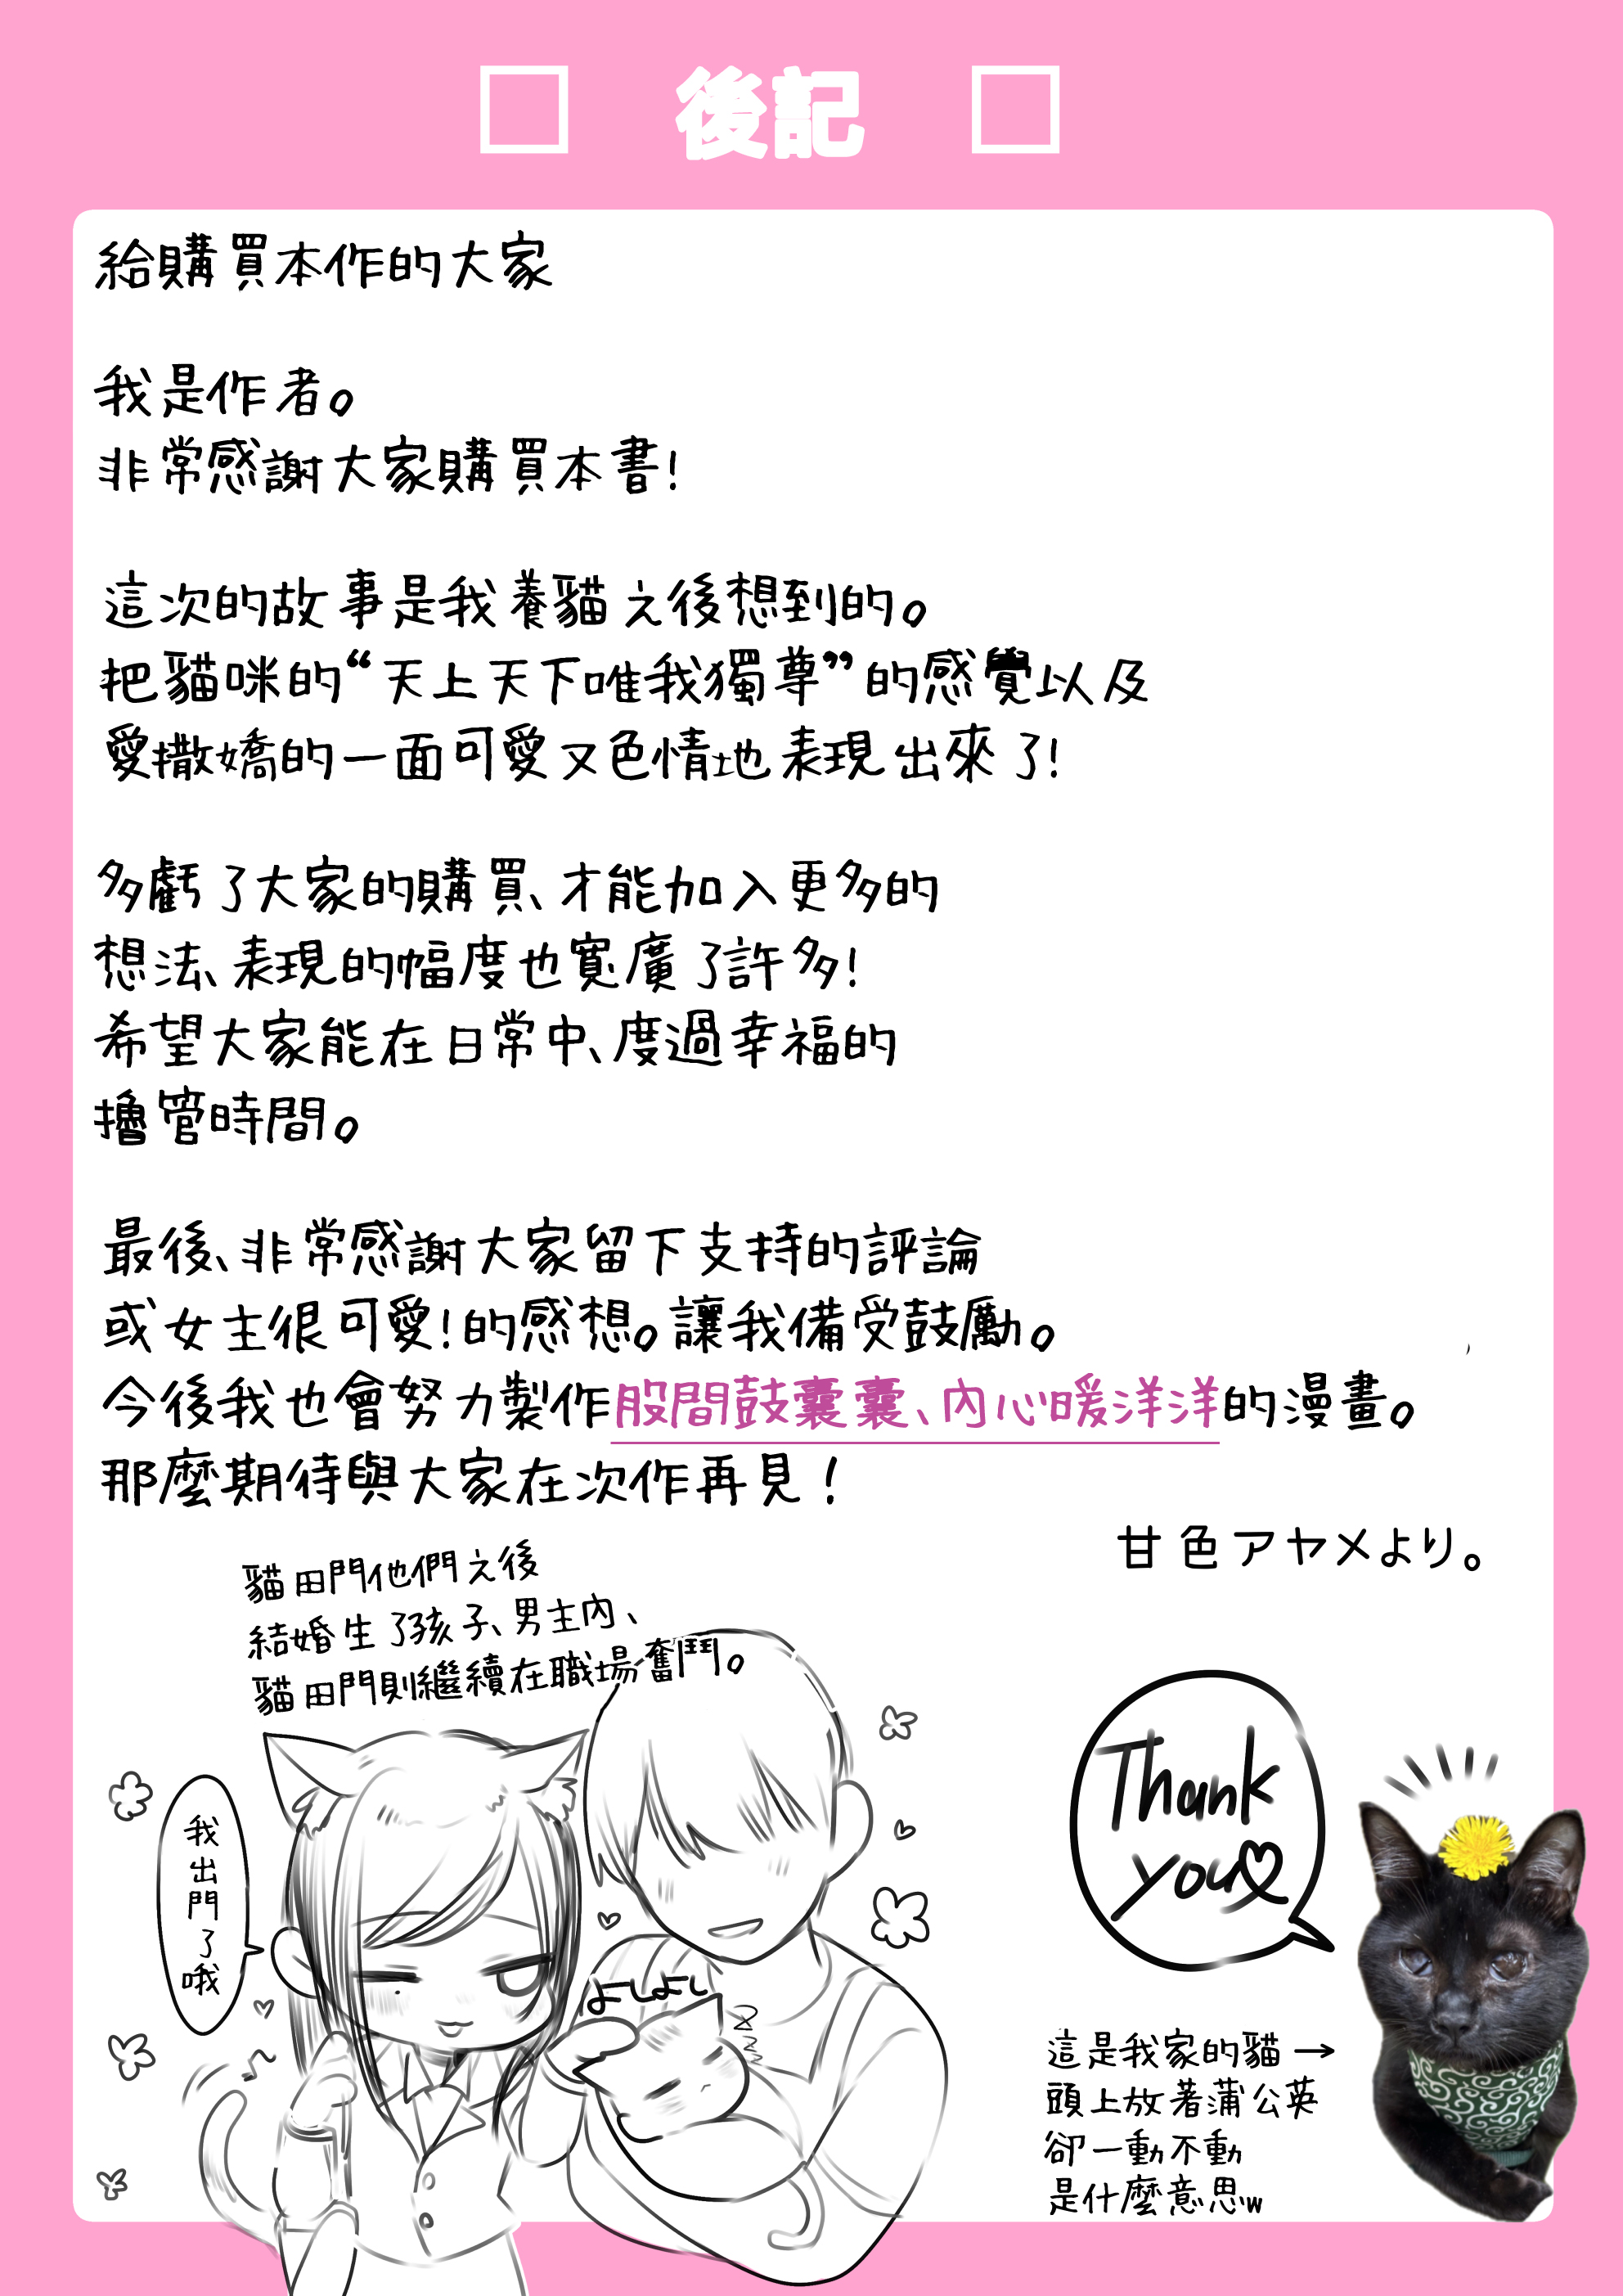 □ 後記 □
給購買本作的大家
我是作者。
非常感謝大家購買本書!
這次的故事是我養貓之後想到的。
把貓咪的“天上天下唯我獨尊”的感覺以及
愛撒嬌的一面可愛又色情地表現出來了!
多虧了大家的購買、才能加入更多的
想法、表現的幅度也寬廣了許多!
希望大家能在日常中、度過幸福的
擼管時間。
最後、非常感謝大家留下支持的評論
或女主很可愛!的感想。讓我備受鼓勵。
今後我也會努力製作股間鼓囊囊、內心暖洋洋的漫畫。
那麼期待與大家在次作再見!
甘色アヤメより。
貓田門他們之後
結婚生了孩子、男主內、
貓田門則繼續在職場奮鬥。
我出門了哦
よしよし
Thank
you♡
這是我家的貓→
頭上放著蒲公英
卻一動不動
是什麼意思w